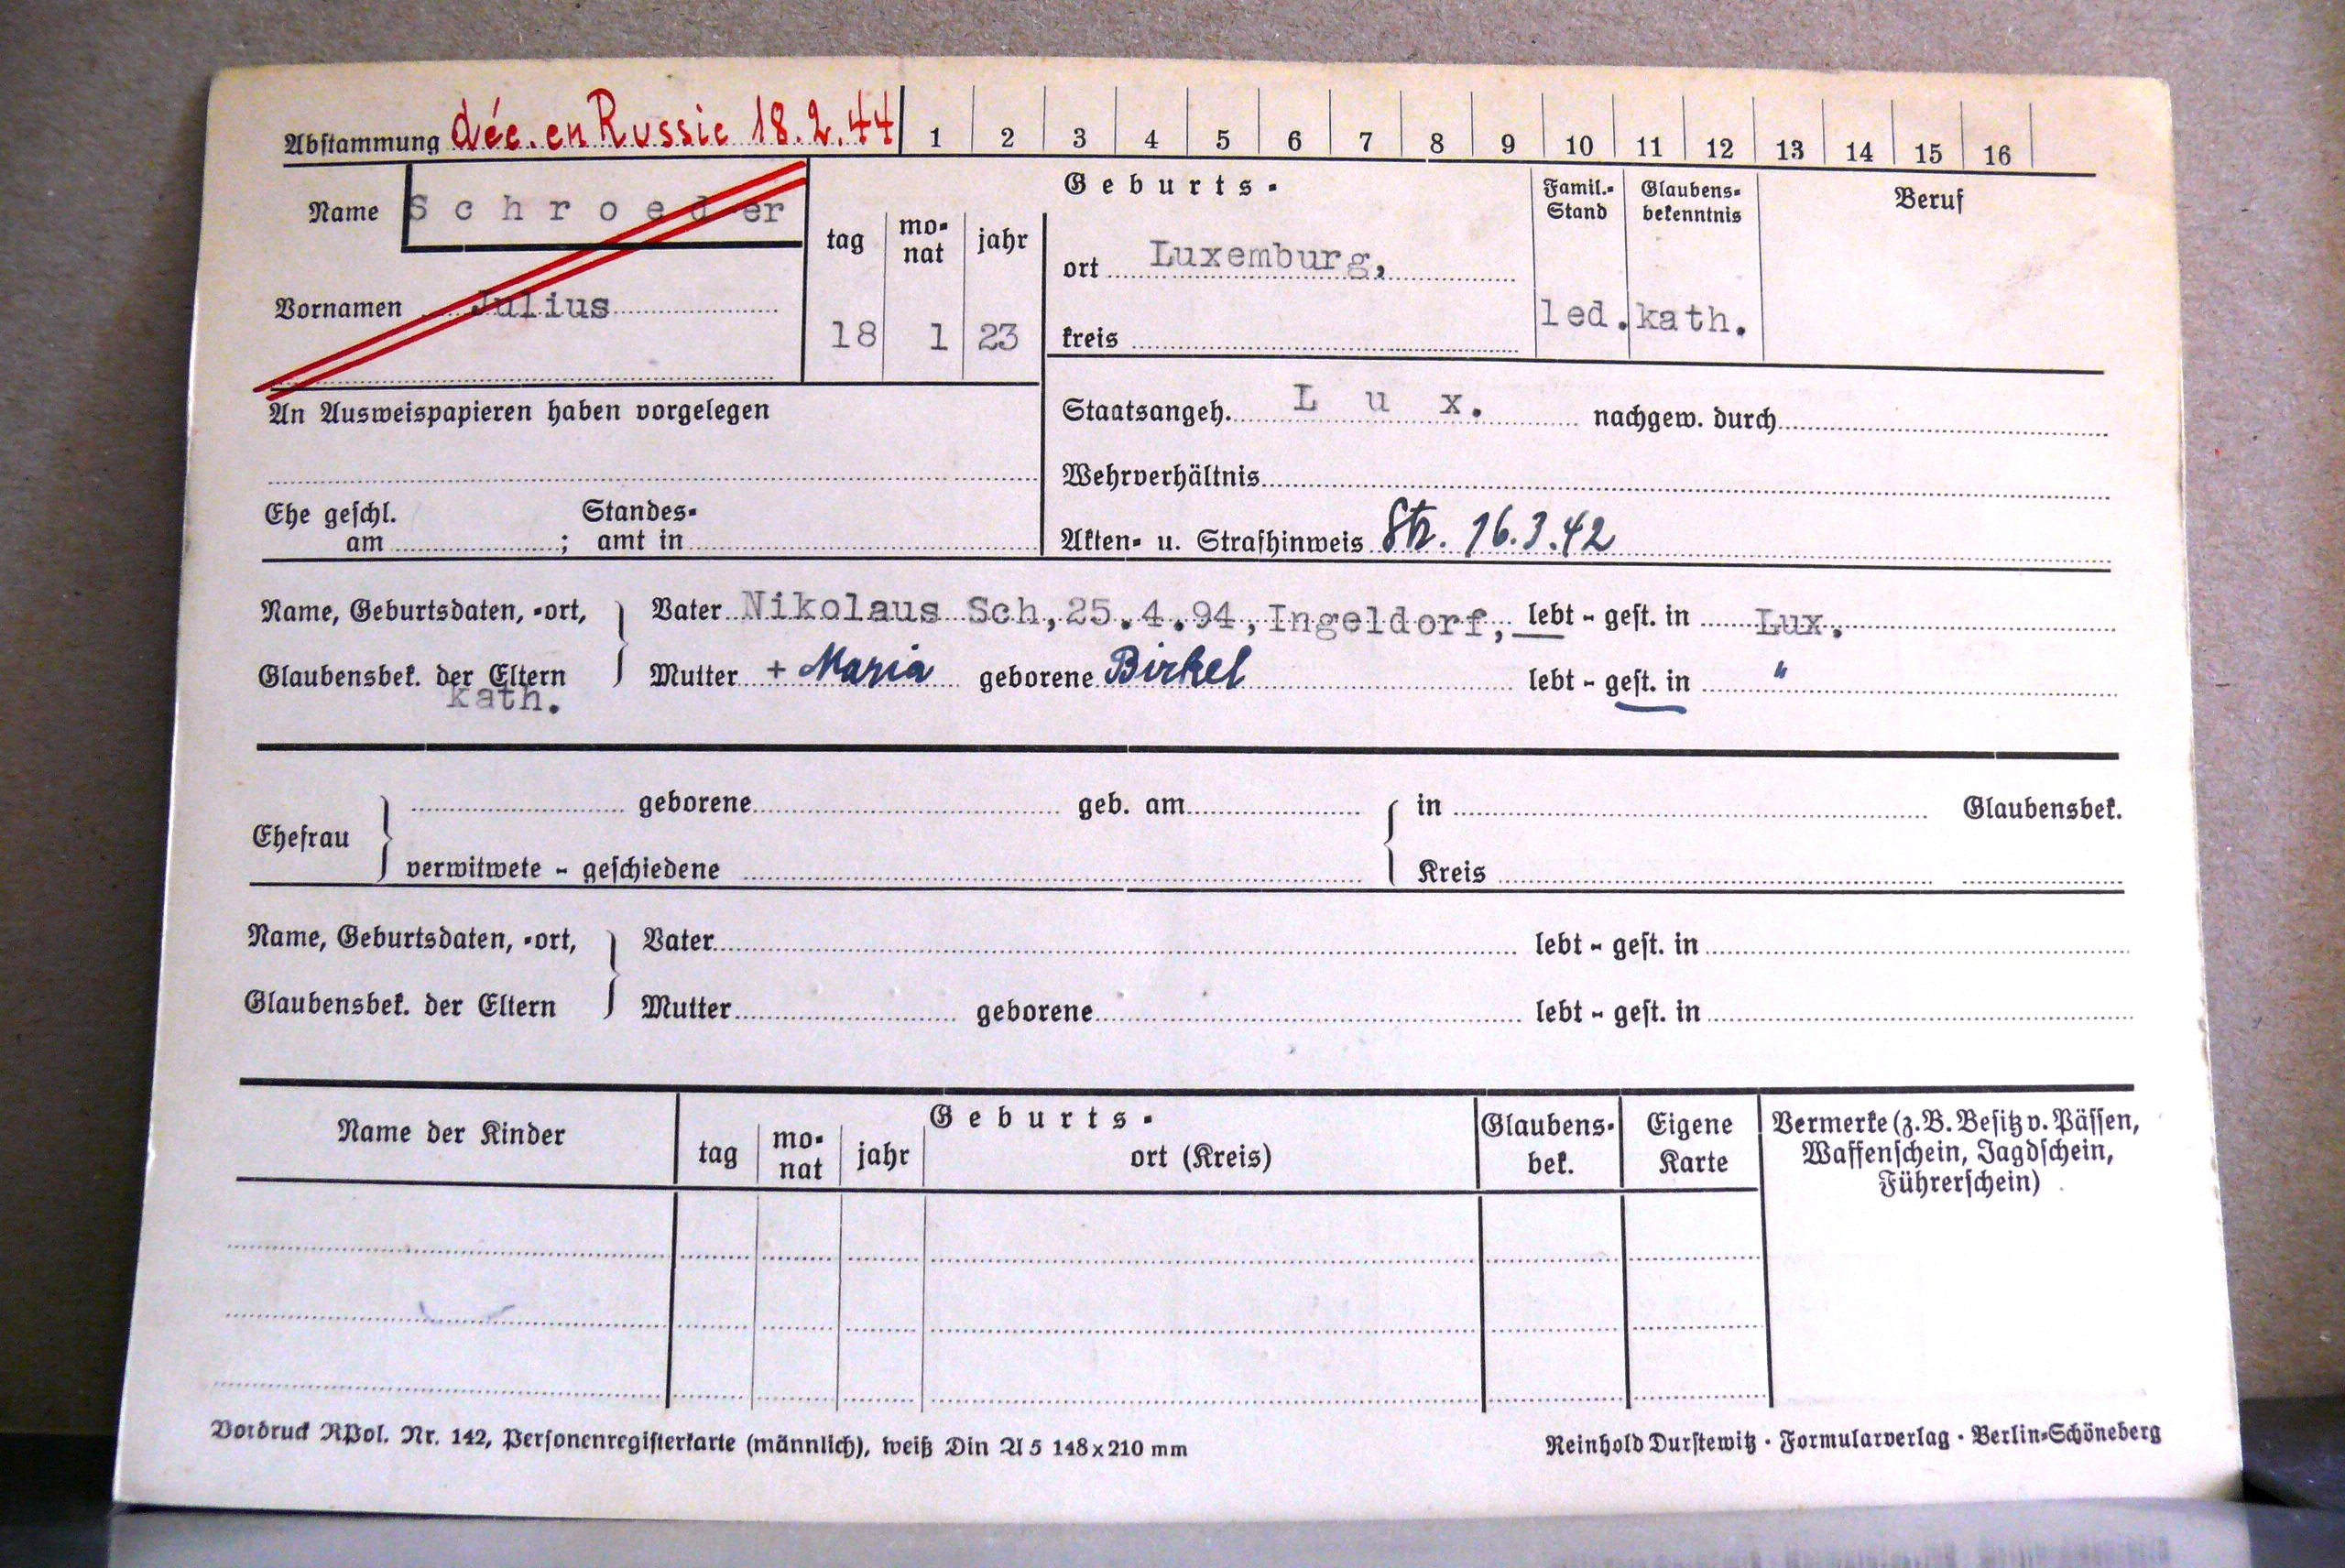 Abstammung dée. en Russie 18.2.44 1 2 3 4 5 6 7 8 9 10 11 12 13 14 15 16
Name Schroeder
Vornamen Julius
Geburts-
tag monat jahr
18 1 23
ort Luxemburg,
kreis
Famil.-Stand
led.
Glaubens-bekenntnis
kath.
Beruf
An Ausweispapieren haben vorgelegen
Staatsangeh. Lux. nachgew. durch
Wehrverhältnis
Ehe geschl. am ; Standes-amt in
Akten- u. Strafhinweis Str. 16.3.42
Name, Geburtsdaten, -ort, Vater Nikolaus Sch, 25.4.94, Ingeldorf, lebt - gest. in Lux.
Glaubensbek. der Eltern Mutter + Maria geborene Birkel lebt - gest. in "
kath.
Ehefrau
geborene geb. am in Glaubensbek.
verwitwete - geschiedene Kreis
Name, Geburtsdaten, -ort, Vater lebt - gest. in
Glaubensbek. der Eltern Mutter geborene lebt - gest. in
Name der Kinder
Geburts-
tag monat jahr ort (Kreis)
Glaubens-bek.
Eigene Karte
Vermerke (z.B. Besitz v. Pässen,
Waffenschein, Jagdschein,
Führerschein)
Vordruck RPol. Nr. 142, Personenregisterkarte (männlich), weiß Din A 5 148x210 mm
Reinhold Durstewitz · Formularverlag · Berlin-Schöneberg